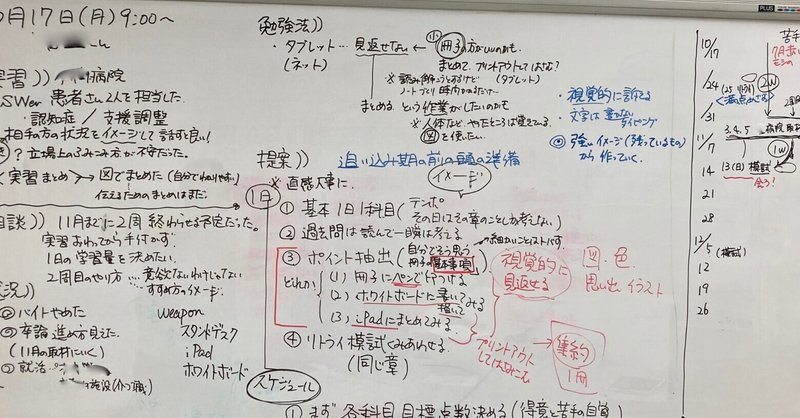 月17日(月) 9:00〜
実習))
病院
SWer 患者さん2人を担当した。
・認知症 / 支援調整
相手の方の状況をイメージして話すと良い!
? 立場上のふみこみ方が不安だった。
実習まとめ → 図でまとめた (自分でわかりやすい)
伝えるためのまとめはまだ。
相談)) 11月までに2周 終わらせる予定だった。
実習おわってから手付かず。
1日の学習量を決めたい。
2周目のやり方 … 意欲ないわけじゃない
すすめ方のイメージ。
バイトやめた
卒論 進め方見えた。
(11月の取材にいく)
就活
weapon
スタンドデスク
iPad
ホワイトボード
勉強法))
・タブレット … 見返せない ← 小 冊子の方がいいのかも。
(ネット)
まとめて、プリントアウトしてはさむ?
(タブレット)
ノートづくり 時間かかるだけ
まとめる という作業がしたいのかも
※人体など、やったところは覚えてる
図を使いたい。
・視覚的に訴てる
・文字は書かない
タイピング
強いイメージ(残っているもの)
から 作っていく。
提案)) 追い込み期の前の頭の準備
イメージ
1日
※直感大事に。
① 基本1日1科目 (テンポ
その日はその章のことしか考えない)
② 過去問は読んで一瞬は考える
細かいことはスルーです。
③ ポイント抽出 (自分でそう思う
冊子の基本事項)
どれか
(1) 冊子にペンで印つける
(2) ホワイトボードに書いてみる
描いて
(3) iPadにまとめてみる。
④ リトライ模試くみあわせる。
(同じ章)
視覚的に
見返せる
図・色
思い出 イラスト
プリントアウト
してはさむにも
集約
1冊
スケジュール
① まず 各科目 目標点数決める (得意と苦手の自覚)
10/17
24
31
11/7
14
21
28
12/5 (模試)
12
19
26
2w
3.4.5
1w
13(日) 模試
会う!
苦手
PLUS